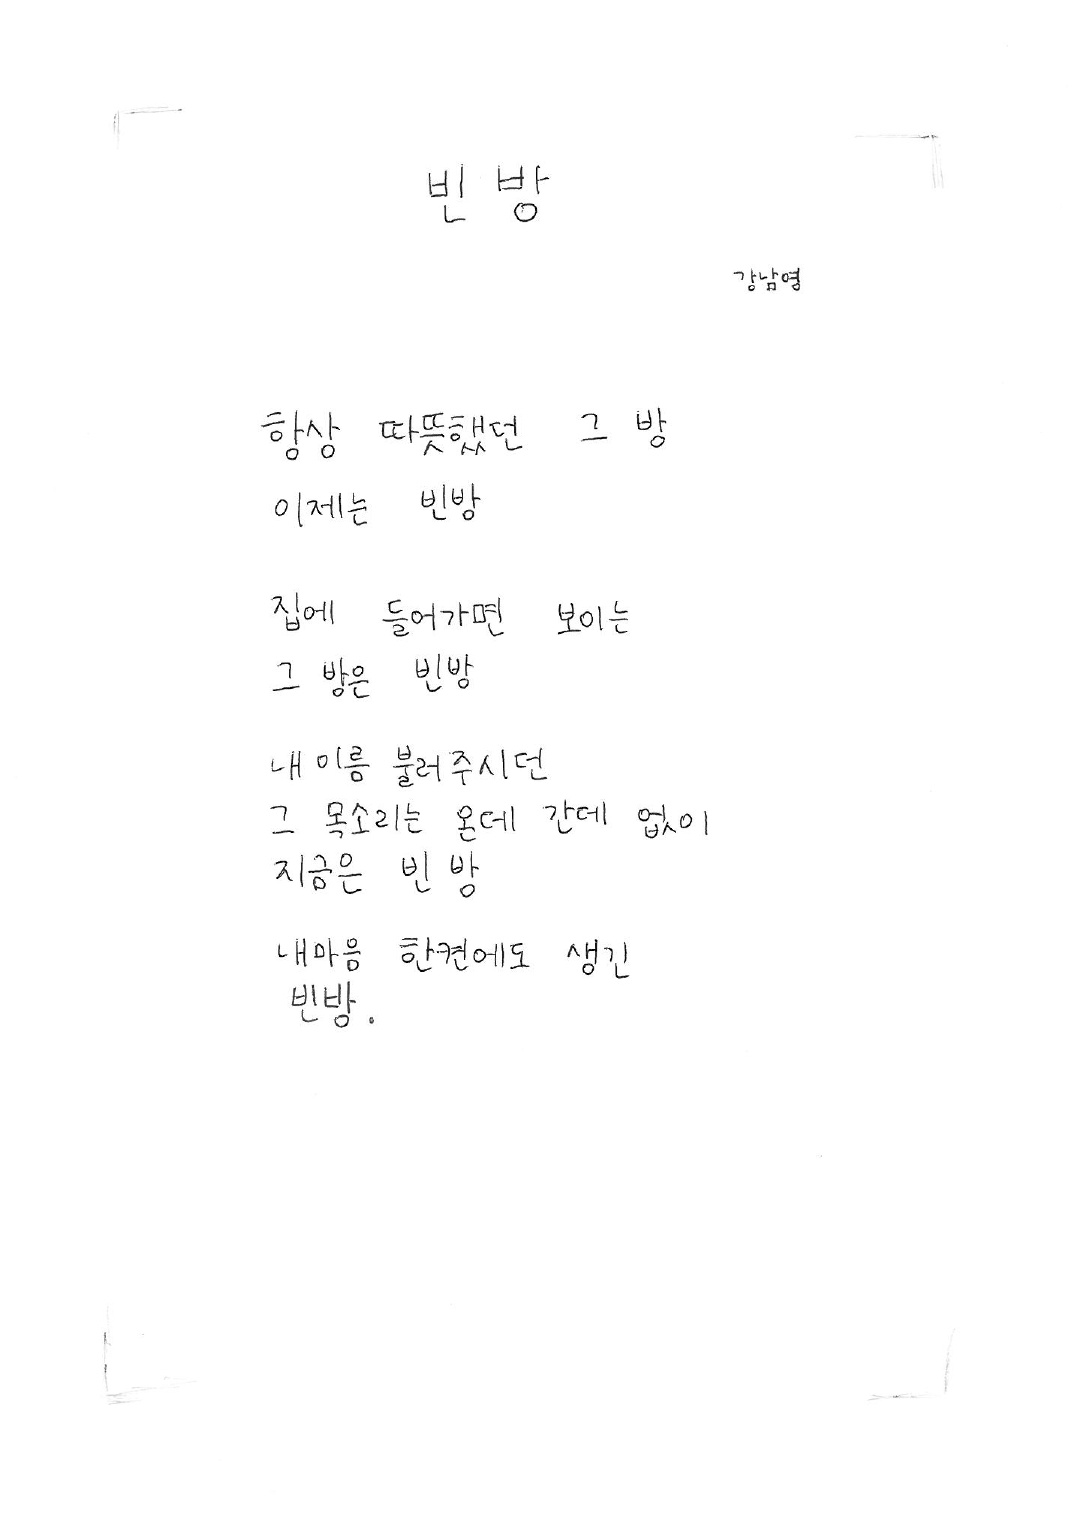 빈 방
강남영
항상 따뜻했던 그 방
이제는 빈방
집에 들어가면 보이는
그 방은 빈방
내 이름 불러주시던
그 목소리는 온데 간데 없이
지금은 빈 방
내마음 한켠에도 생긴
빈방.